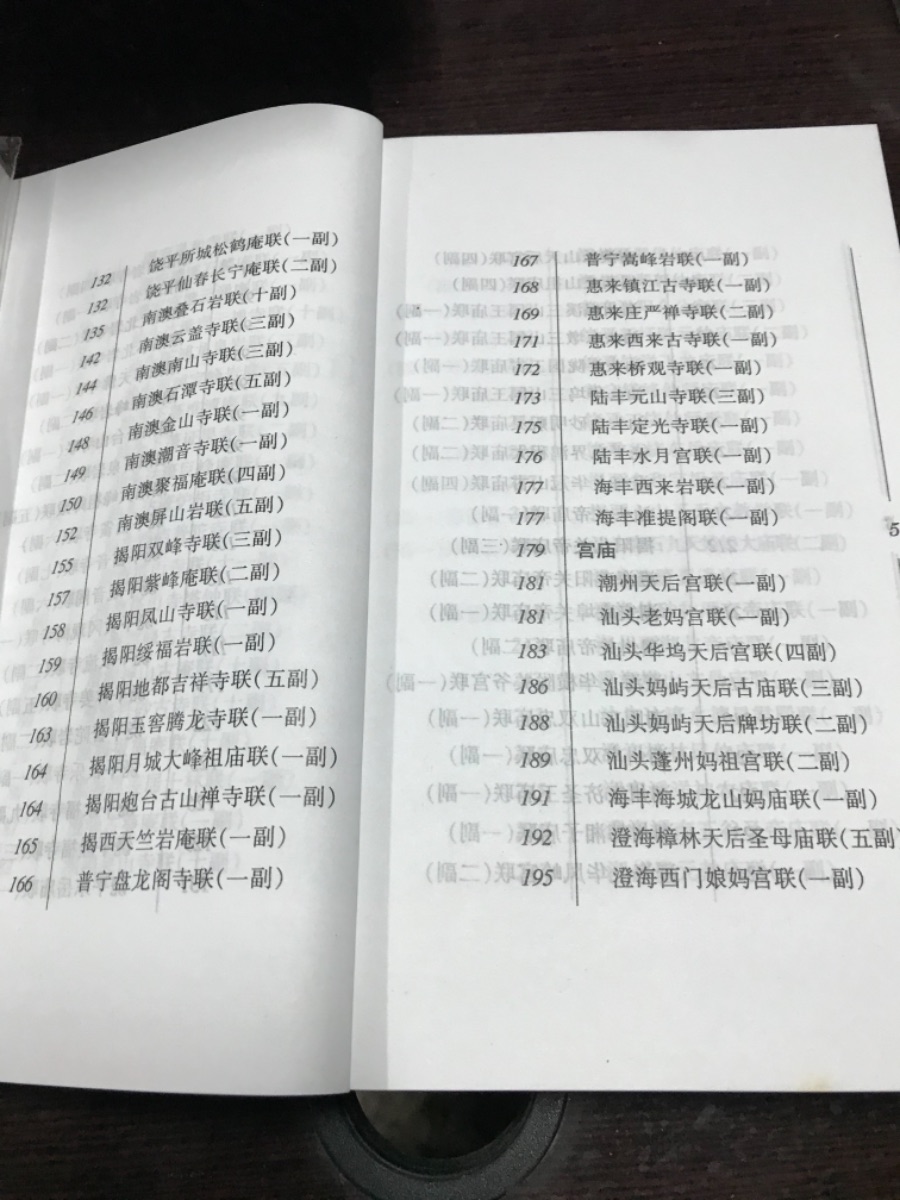 132 饶平所城松鹤庵联(一副)
132 饶平仙春长宁庵联(二副)
135 南澳叠石岩联(十副)
142 南澳云盖寺联(三副)
144 南澳南山寺联(三副)
146 南澳石潭寺联(五副)
148 南澳金山寺联(一副)
149 南澳潮音寺联(一副)
150 南澳聚福庵联(四副)
152 南澳屏山岩联(五副)
155 揭阳双峰寺联(三副)
157 揭阳紫峰庵联(二副)
158 揭阳凤山寺联(一副)
159 揭阳绥福岩联(一副)
160 揭阳地都吉祥寺联(五副)
163 揭阳玉窖腾龙寺联(一副)
164 揭阳月城大峰祖庙联(一副)
164 揭阳炮台古山禅寺联(一副)
165 揭西天竺岩庵联(一副)
166 普宁盘龙阁寺联(一副)
167 普宁嵩峰岩联(一副)
168 惠来镇江古寺联(一副)
169 惠来庄严禅寺联(二副)
171 惠来西来古寺联(一副)
172 惠来桥观寺联(一副)
173 陆丰元山寺联(三副)
175 陆丰定光寺联(一副)
176 陆丰水月宫联(一副)
177 海丰西来岩联(一副)
177 海丰准提阁联(一副)
179 宫庙
181 潮州天后宫联(一副)
181 汕头老妈宫联(一副)
183 汕头华坞天后宫联(四副)
186 汕头妈屿天后古庙联(三副)
188 汕头妈屿天后牌坊联(二副)
189 汕头蓬州妈祖宫联(二副)
191 海丰海城龙山妈庙联(一副)
192 澄海樟林天后圣母庙联(五副)
195 澄海西门娘妈宫联(一副)
5